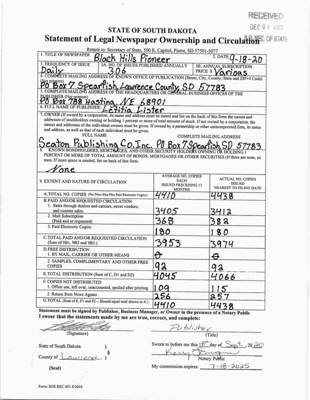 RECEIVED
STATE OF SOUTH DAKOTA
Statement of Legal Newspaper Ownership and Circulation
Return to: Secretary of State, 500 E. Capitol, Pierre, SD 57501-5077
1. TITLE OF NEWSPAPER Black Hills Pioneer 2. DATE 9-18-20
3. FREQUENCY OF ISSUE Daily 3A. NO. OF ISSUES PUBLISHED ANNUALLY 306 3B. ANNUAL SUBSCRIPTION PRICE $ Various
4. COMPLETE MAILING ADDRESS OF KNOWN OFFICE OF PUBLICATION (Street, City, County, State and ZIP+4 Code) (Not printers)
PO Box 7 Spearfish, Lawrence County, SD 57783
5. COMPLETE MAILING ADDRESS OF THE HEADQUARTERS OR GENERAL BUSINESS OFFICES OF THE PUBLISHER (Not printers)
PO Box 788 Hasting, NE 68901
6. FULL NAME OF PUBLISHER: Letitia Lister
7. OWNER (If owned by a corporation, its name and address must be stated and list on the back of this form the names and
addresses of stockholders owning or holding 1 percent or more of total amount of stock. If not owned by a corporation, the
names and addresses of the individual owners must be given. If owned by a partnership or other unincorporated firm, its name
and address, as well as that of each individual must be given.
FULL NAME COMPLETE MAILING ADDRESS
Seaton Publishing Co, Inc. PO Box 7, Spearfish, SD 57783
8. KNOWN BONDHOLDERS, MORTGAGES, AND OTHER SECURITY HOLDERS OWNING OR HOLDING 1
PERCENT OR MORE OF TOTAL AMOUNT OF BONDS, MORTGAGES OR OTHER SECURITIES (If there are none, so
state. If more space is needed, list on back of this form.
None
9. EXTENT AND NATURE OF CIRCULATION AVERAGE NO. COPIES EACH ISSUED PRECEDING 12 MONTHS ACTUAL NO. COPIES ISSUED NEAREST TO FILING DATE
A. TOTAL NO. COPIES (Net Press Run Plus Paid Electronic Copies) 4410 4438
B. PAID AND/OR REQUESTED CIRCULATION
1. Sales through dealers and carriers, street vendors, and counter sales. 3405 3412
2. Mail Subscription (Paid and or requested) 368 382
3. Paid Electronic Copies 180 180
C. TOTAL PAID AND/OR REQUESTED CIRCULATION (Sum of 9B1, 9B2 and 9B3.) 3953 3974
D. FREE DISTRIBUTION
1. BY MAIL, CARRIER OR OTHER MEANS 0 0
2. SAMPLES, COMPLIMENTARY AND OTHER FREE COPIES 92 92
E. TOTAL DISTRIBUTION (Sum of C, D1 and D2) 4045 4066
F. COPIES NOT DISTRIBUTED
1. Office use, left over, unaccounted, spoiled after printing 109 115
2. Return from News Agents 256 257
G. TOTAL (Sum of E, F1 and F2 – Should equal total shown in A.) 4410 4438
Statement must be signed by Publisher, Business Manager, or Owner in the presence of a Notary Public
I swear that the statements made by me are true, correct, and complete:
Publisher
(Signature) (Title)
State of South Dakota ) Sworn to before me this 18th day of Sept, 2020
County of Lawrence )
Notary Public
(Seal) My commission expires: 7-18-2025
Form: SOS REC 051 9/2016